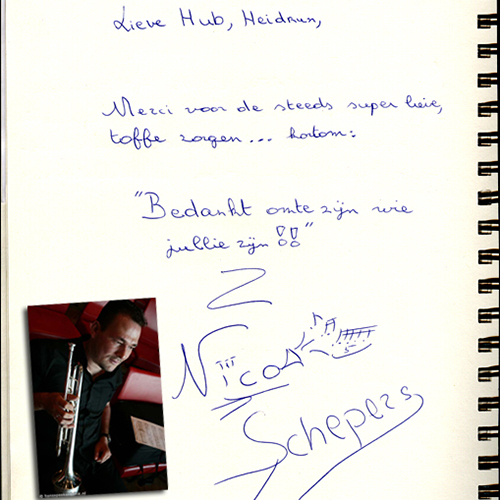 Lieve Hub, Heidrun,
Merci voor de steeds super lieve,
toffe zorgen... kortom:
"Bedankt omte zijn wie
jullie zijn!!"
Nico
Schepers